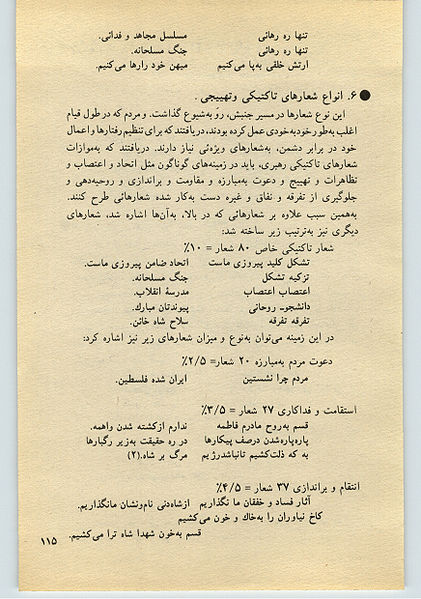 تنها ره رهائی مسلسل مجاهد و فدائی.
تنها ره رهائی جنگ مسلحانه.
ارتش خلقی به‌پا می‌کنیم میهن خود رارها می‌کنیم.
● ۶. انواع شعارهای تاکتیکی وتهییجی.
این نوع شعارها در مسیر جنبش، رو به‌شیوع گذاشت. و مردم که در طول قیام
اغلب به‌طور خودبه‌خودی عمل کرده بودند، دریافتند که برای تنظیم رفتارها و اعمال
خود در برابر دشمن، به‌شعارهای ویژه‌ئی نیاز دارند. دریافتند که به‌موازات
شعارهای تاکتیکی رهبری، باید در زمینه‌های گوناگون مثل اتحاد و اعتصاب و
تظاهرات و تهییج و دعوت به‌مبارزه و مقاومت و براندازی و روحیه‌دهی و
جلوگیری از تفرقه و نفاق و غیره دست به‌کار شده شعارهائی طرح کنند.
به‌همین سبب علاوه بر شعارهائی که در بالا، به‌آن‌ها اشاره شد، شعارهای
دیگری نیز به‌ترتیب زیر ساخته شد:
شعار تاکتیکی خاص ۸۰ شعار= ۱۰٪
تشکل کلید پیروزی ماست اتحاد ضامن پیروزی ماست.
تزکیه تشکل جنگ مسلحانه.
اعتصاب اعتصاب مدرسهٔ انقلاب.
دانشجوـ روحانی پیوندتان مبارك.
تفرقه تفرقه سلاح شاه خائن.
در این زمینه می‌توان به‌نوع و میزان شعارهای زیر نیز اشاره کرد:
دعوت مردم به‌مبارزه ۲۰ شعار= ۲/۵٪
مردم چرا نشستین ایران شده فلسطین.
استقامت و فداکاری ۲۷ شعار= ۳/۵٪
قسم به‌روح مادرم فاطمه ندارم ازکشته شدن واهمه.
پاره‌پاره‌شدن درصف پیکارها در ره حقیقت به‌زیر رگبارها
به که ذلت‌کشیم تانباشدرژیم مرگ بر شاه.(۲)
انتقام و براندازی ۳۷ شعار= ۴/۵٪
آثار فساد و خفقان ما نگذاریم ازشاه‌دنی نام‌ونشان مانگذاریم.
کاخ نیاوران را به‌خاك و خون می‌کشیم
قسم به‌خون شهدا شاه ترا می‌کشیم.
۱۱۵